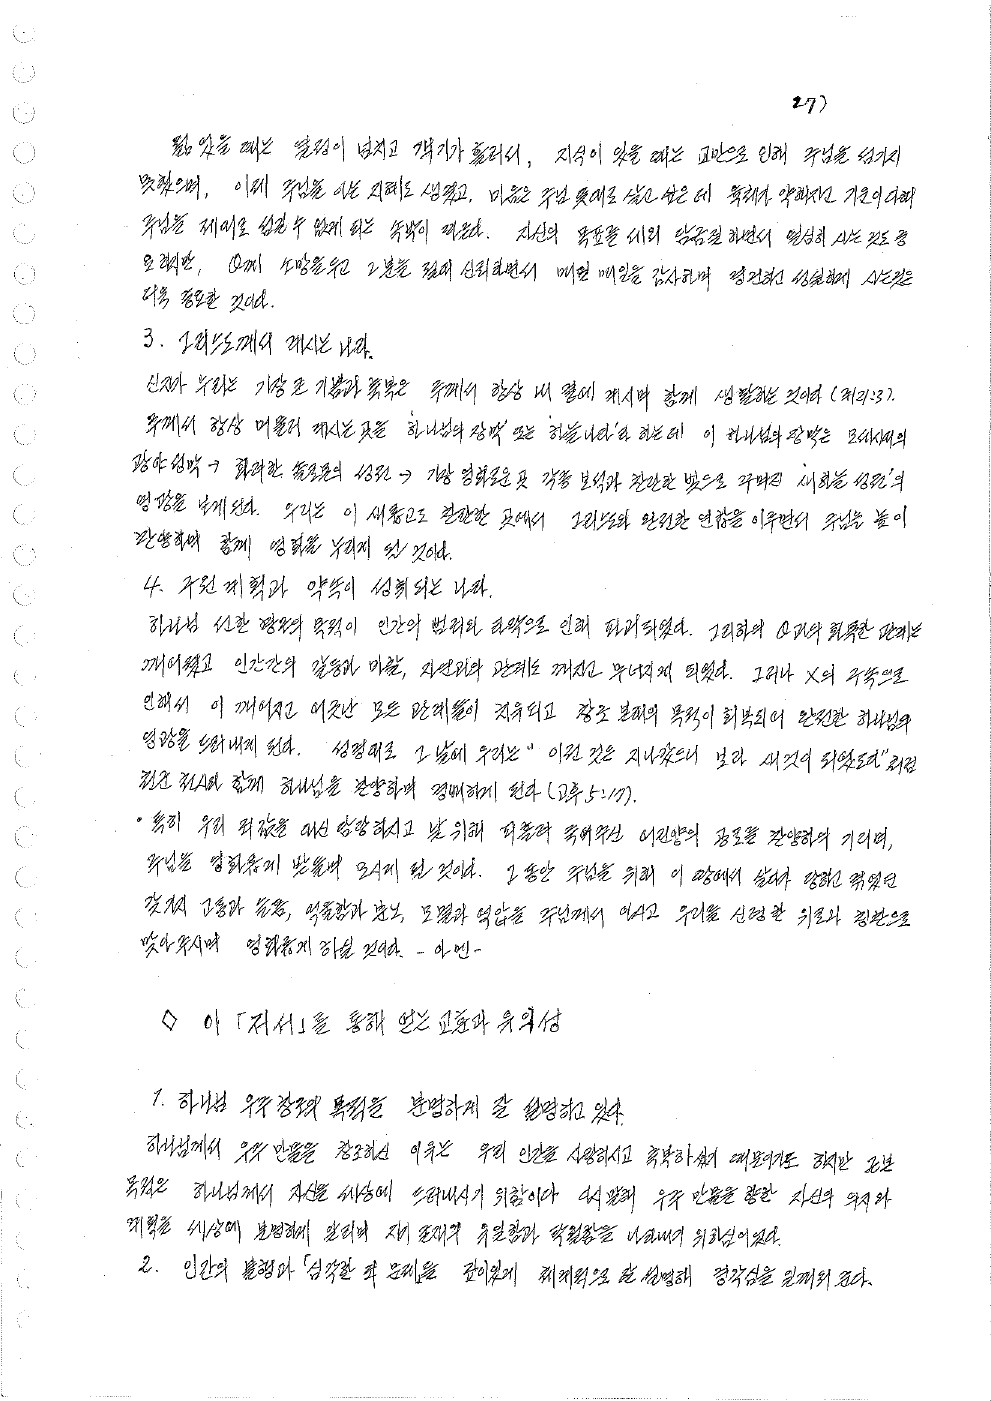 27)
젊었을 때는 열정이 넘치고 객기가 흘러서, 지식이 있을 때는 교만으로 인해 주님을 섬기지
못했으며, 이제 주님을 아는 지혜도 생겼고, 마음은 주님 뜻대로 살고 싶은데 육체가 약해지고 기운이
주님을 제대로 섬길 수 없게 되는 때문다. 자신의 목표를 세워 하면서 열심히 사는 것도 중
요하지만, 0께 소망을 두고 그분을 절대 신뢰하면서 매일을 감사하며 경건하고 성실하게 사는것은
더욱 중요한 것이다.
3. 그리스도께서 계시는 나라.
신자가 누리는 가장 큰 기쁨과 축복은 주께서 항상 내 곁에 계시며 함께 생활하는 것이다 (계21:3).
주께서 항상 머물러 계시는 곳을 '하나님의 장막' 또는 하늘나라'라 하는데 이 하나님의 장막은 모세시대의
광야성막 → 화려한 솔로몬의 성전 → 가장 영화로운 곳 각종 보석과 찬란한 빛으로 꾸며진 '새하늘 성전'의
영광을 보게 된다. 우리는 이 새롭고도 찬란한 곳에서 그리스도와 완전한 연합을 이루면서 주님을 높이
찬양하며 함께 영화을 누리게 된 것이다.
4. 구원 계획과 약속이 성취되는 나라.
하나님 선한 창조의 목적이 인간의 범죄와 타락으로 인해 파괴되었다. 그리하여 0과의 관계는
깨어졌고 인간간의 갈등과 마찰, 자연과의 관계도 깨지고 무너지게 되었다. 그러나 X의 구속으로
인해서 이 깨어지고 어긋난 모든 관계들이 치유되고 창조 본래의 목적이 회복되어 완전한 하나님의
영광을 드러내게 된다. 성경대로 그날에 우리는 "이전 것은 지나갔으니 보라 새것이 되었도다"처럼
천군 천사와 함께 하나님을 찬양하며 경배하게 된다 (고후5:17).
• 특히 우리 죄값을 대신 담당하시고 날 위해 피흘려 죽어주신 어린양의 공로를 찬양하며 기리며,
주님을 영화롭게 받들며 모시게 된 것이다. 그 동안 주님을 위해 이 땅에서 살다가 당하고 겪었던
갖가지 고통과 슬픔, 억울함과 분노, 모멸과 억압을 주님께서 아시고 우리를 신령한 위로와 평안으로
맞아주시며 영화롭게 하실 것이다. -아멘-
◇ 이 「저서」를 통해 얻는 교훈과 유의성
1. 하나님 우주 창조의 목적을 분명하게 잘 설명하고 있다.
하나님께서 우주만물을 창조하신 이유는 우리 인간을 사랑하시고 축복하시기 때문이기도 하지만 근본
목적은 하나님께서 자신을 세상에 드러내시기 위함이다 다시 말해 우주만물을 향한 자신의 의지와
계획을 세상에 분명하게 알리며 자기 존재의 유일함과 탁월함을 나타내기 위하심이었다.
2. 인간의 불행과 「심각한 죄 문제」을 깊이있게 체계적으로 잘 설명해 경각심을 일깨워 준다.